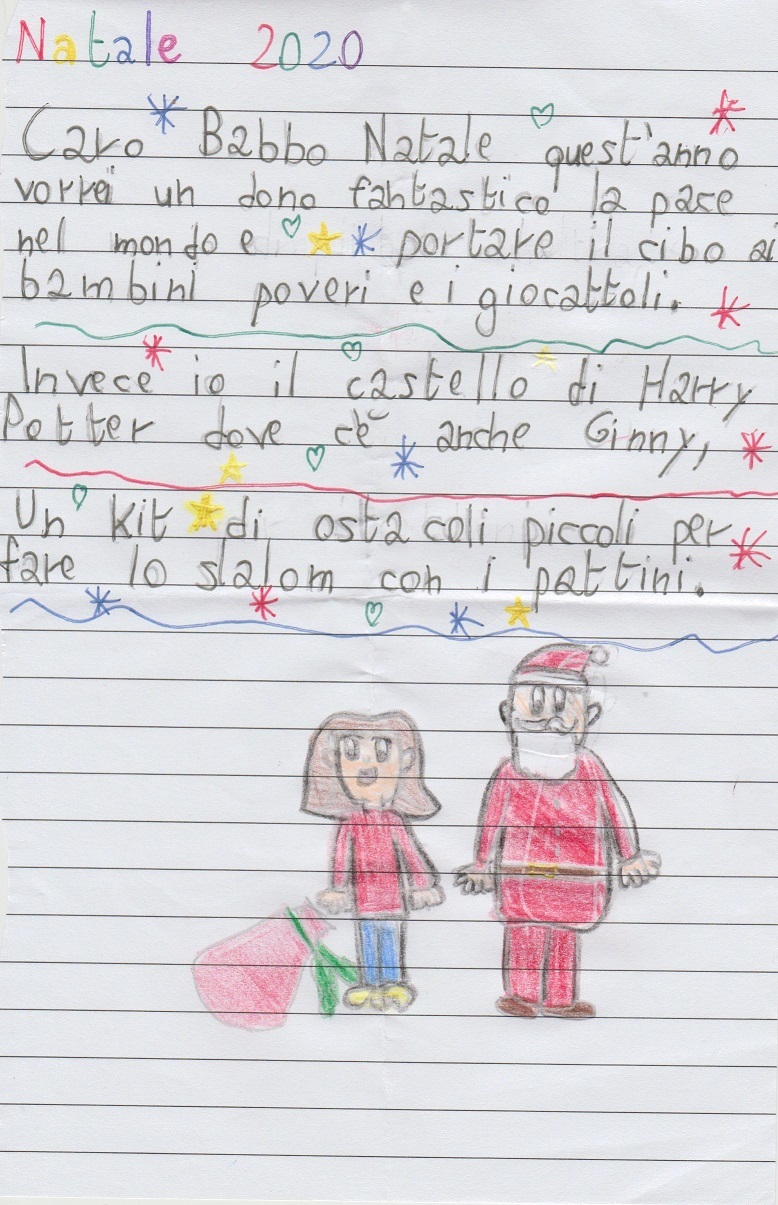 Natale 2020
Caro Babbo Natale quest'anno
vorrei un dono fantastico la pace
nel mondo e portare il cibo ai
bambini poveri e i giocattoli.
Invece io il castello di Harry
Potter dove c'è anche Ginny,
Un kit di ostacoli piccoli per
fare lo slalom con i pattini.